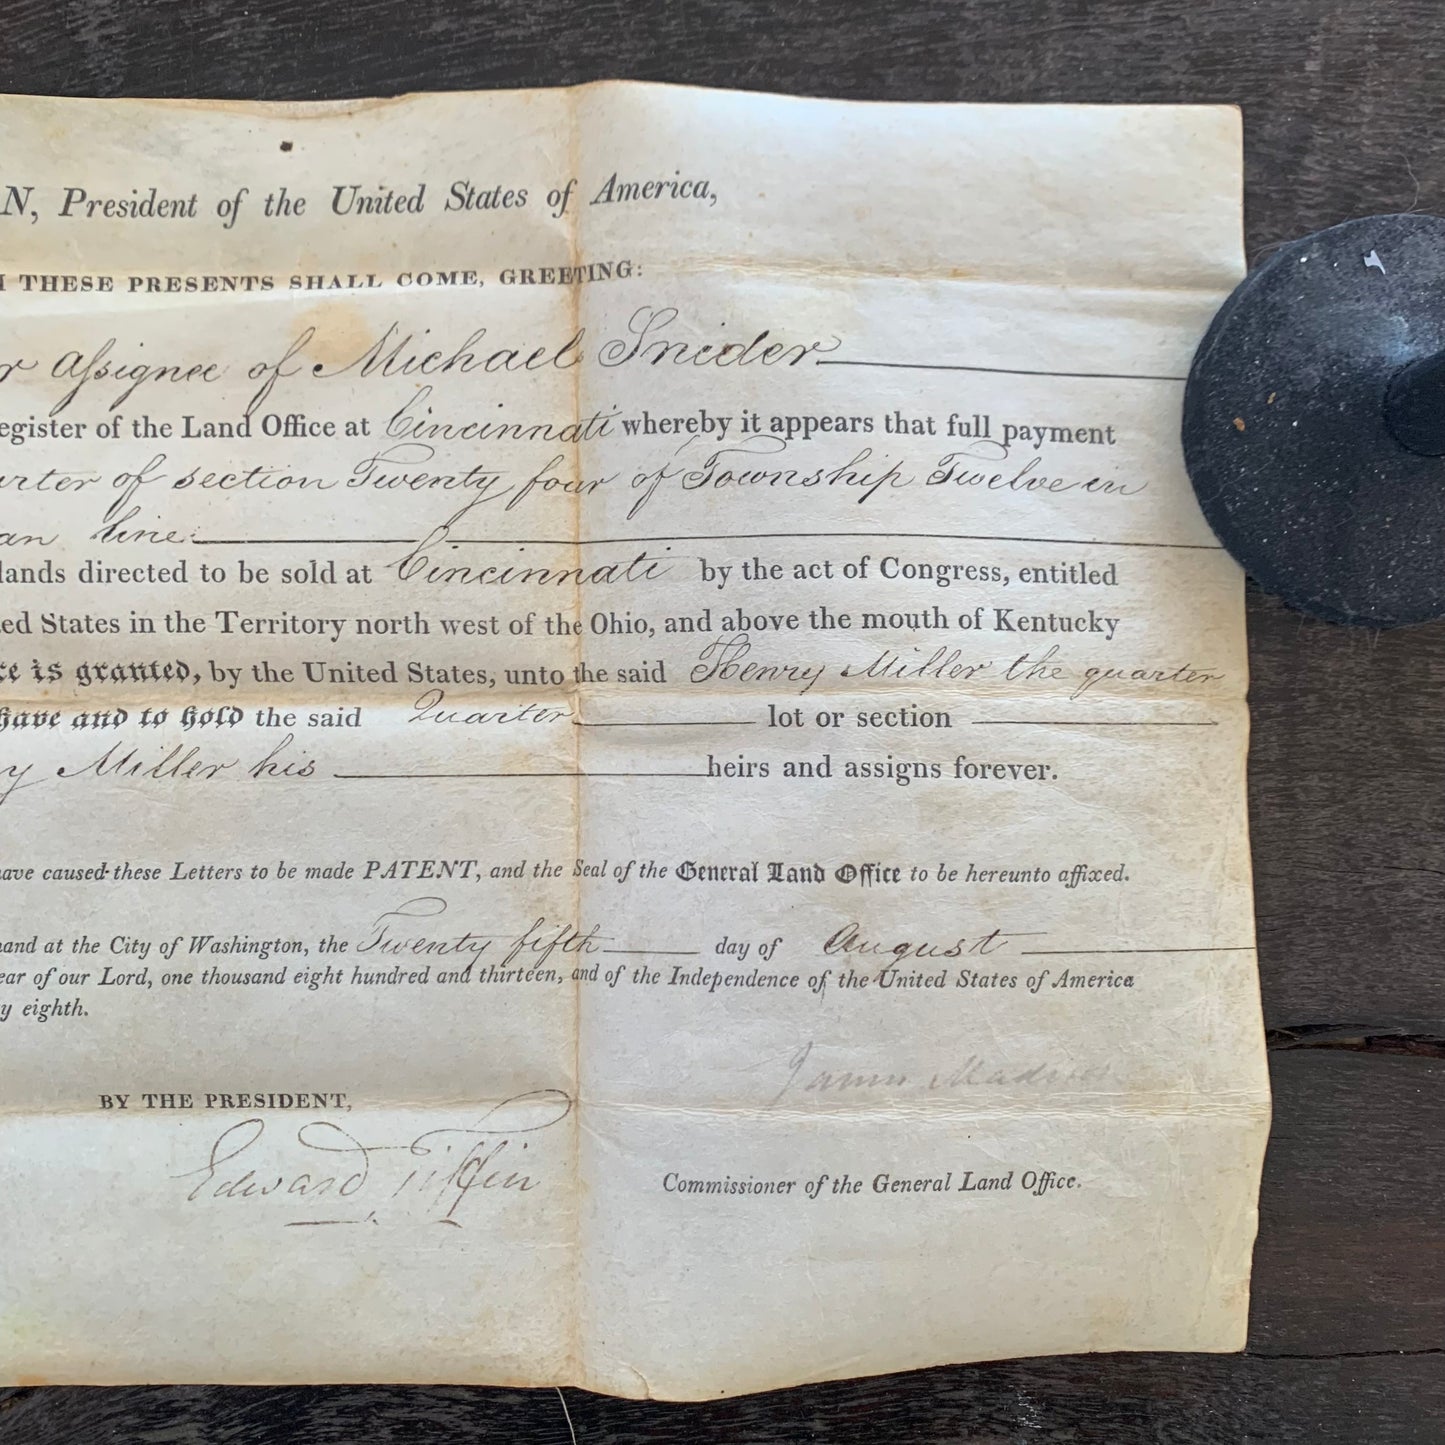 N, President of the United States of America,
THESE PRESENTS SHALL COME, GREETING:
r Assignee of Michael Snider
egister of the Land Office at Cincinnati whereby it appears that full payment
arter of section Twenty four of Township Twelve in
an line
lands directed to be sold at Cincinnati by the act of Congress, entitled
ed States in the Territory north west of the Ohio, and above the mouth of Kentucky
ce is granted, by the United States, unto the said Henry Miller the quarter
have and to hold the said Quarter lot or section
y Miller his heirs and assigns forever.
have caused these Letters to be made PATENT, and the Seal of the General Land Office to be hereunto affixed.
hand at the City of Washington, the Twenty fifth day of August
ear of our Lord, one thousand eight hundred and thirteen, and of the Independence of the United States of America
y eighth.
James Madison
BY THE PRESIDENT,
Edward Tiffin
Commissioner of the General Land Office.